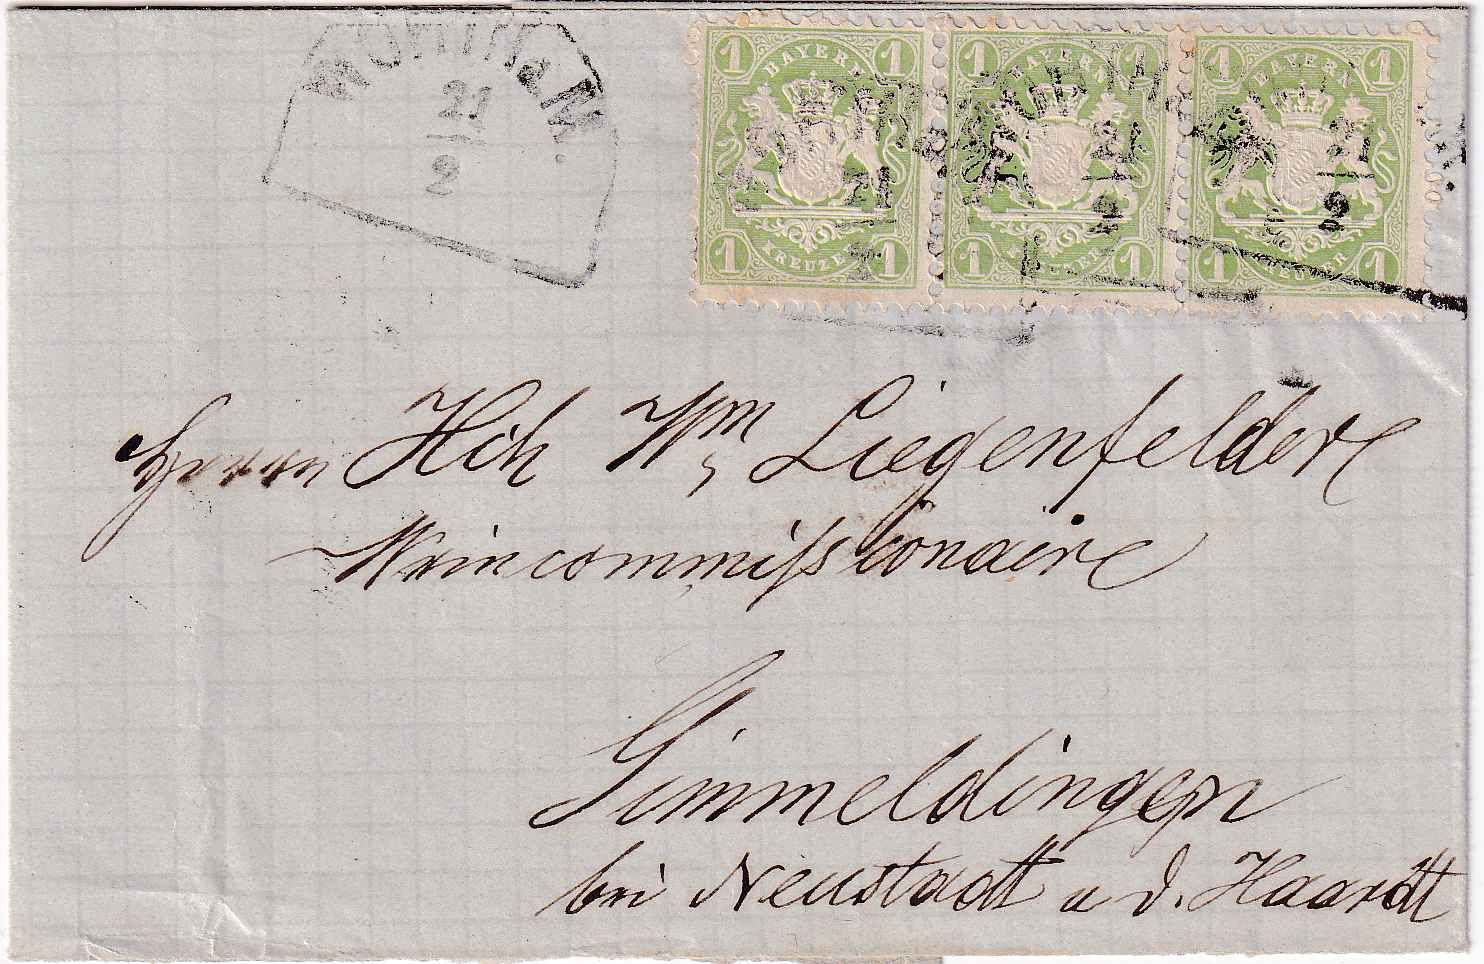 WÖRTH a. M.
21
2
1 BAYERN 1
1 KREUZER 1
1 BAYERN 1
1 KREUZER 1
1 BAYERN 1
1 KREUZER 1
21
2
21
2
21
2
Herrn Hch Wm Liegenfelder
Weincommissionaire
Gimmeldingen
bei Neustadt a d. Haardt